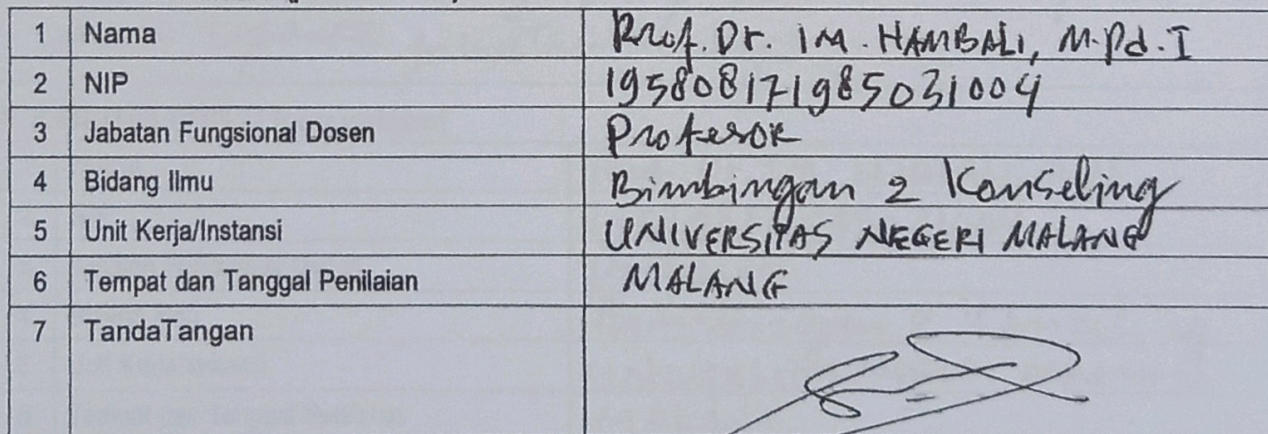 1 Nama Prof. Dr. IM. HAMBALI, M.Pd.I
2 NIP 195808171985031004
3 Jabatan Fungsional Dosen Profesor
4 Bidang Ilmu Bimbingan 2 Konseling
5 Unit Kerja/Instansi UNIVERSITAS NEGERI MALANG
6 Tempat dan Tanggal Penilaian MALANG
7 TandaTangan